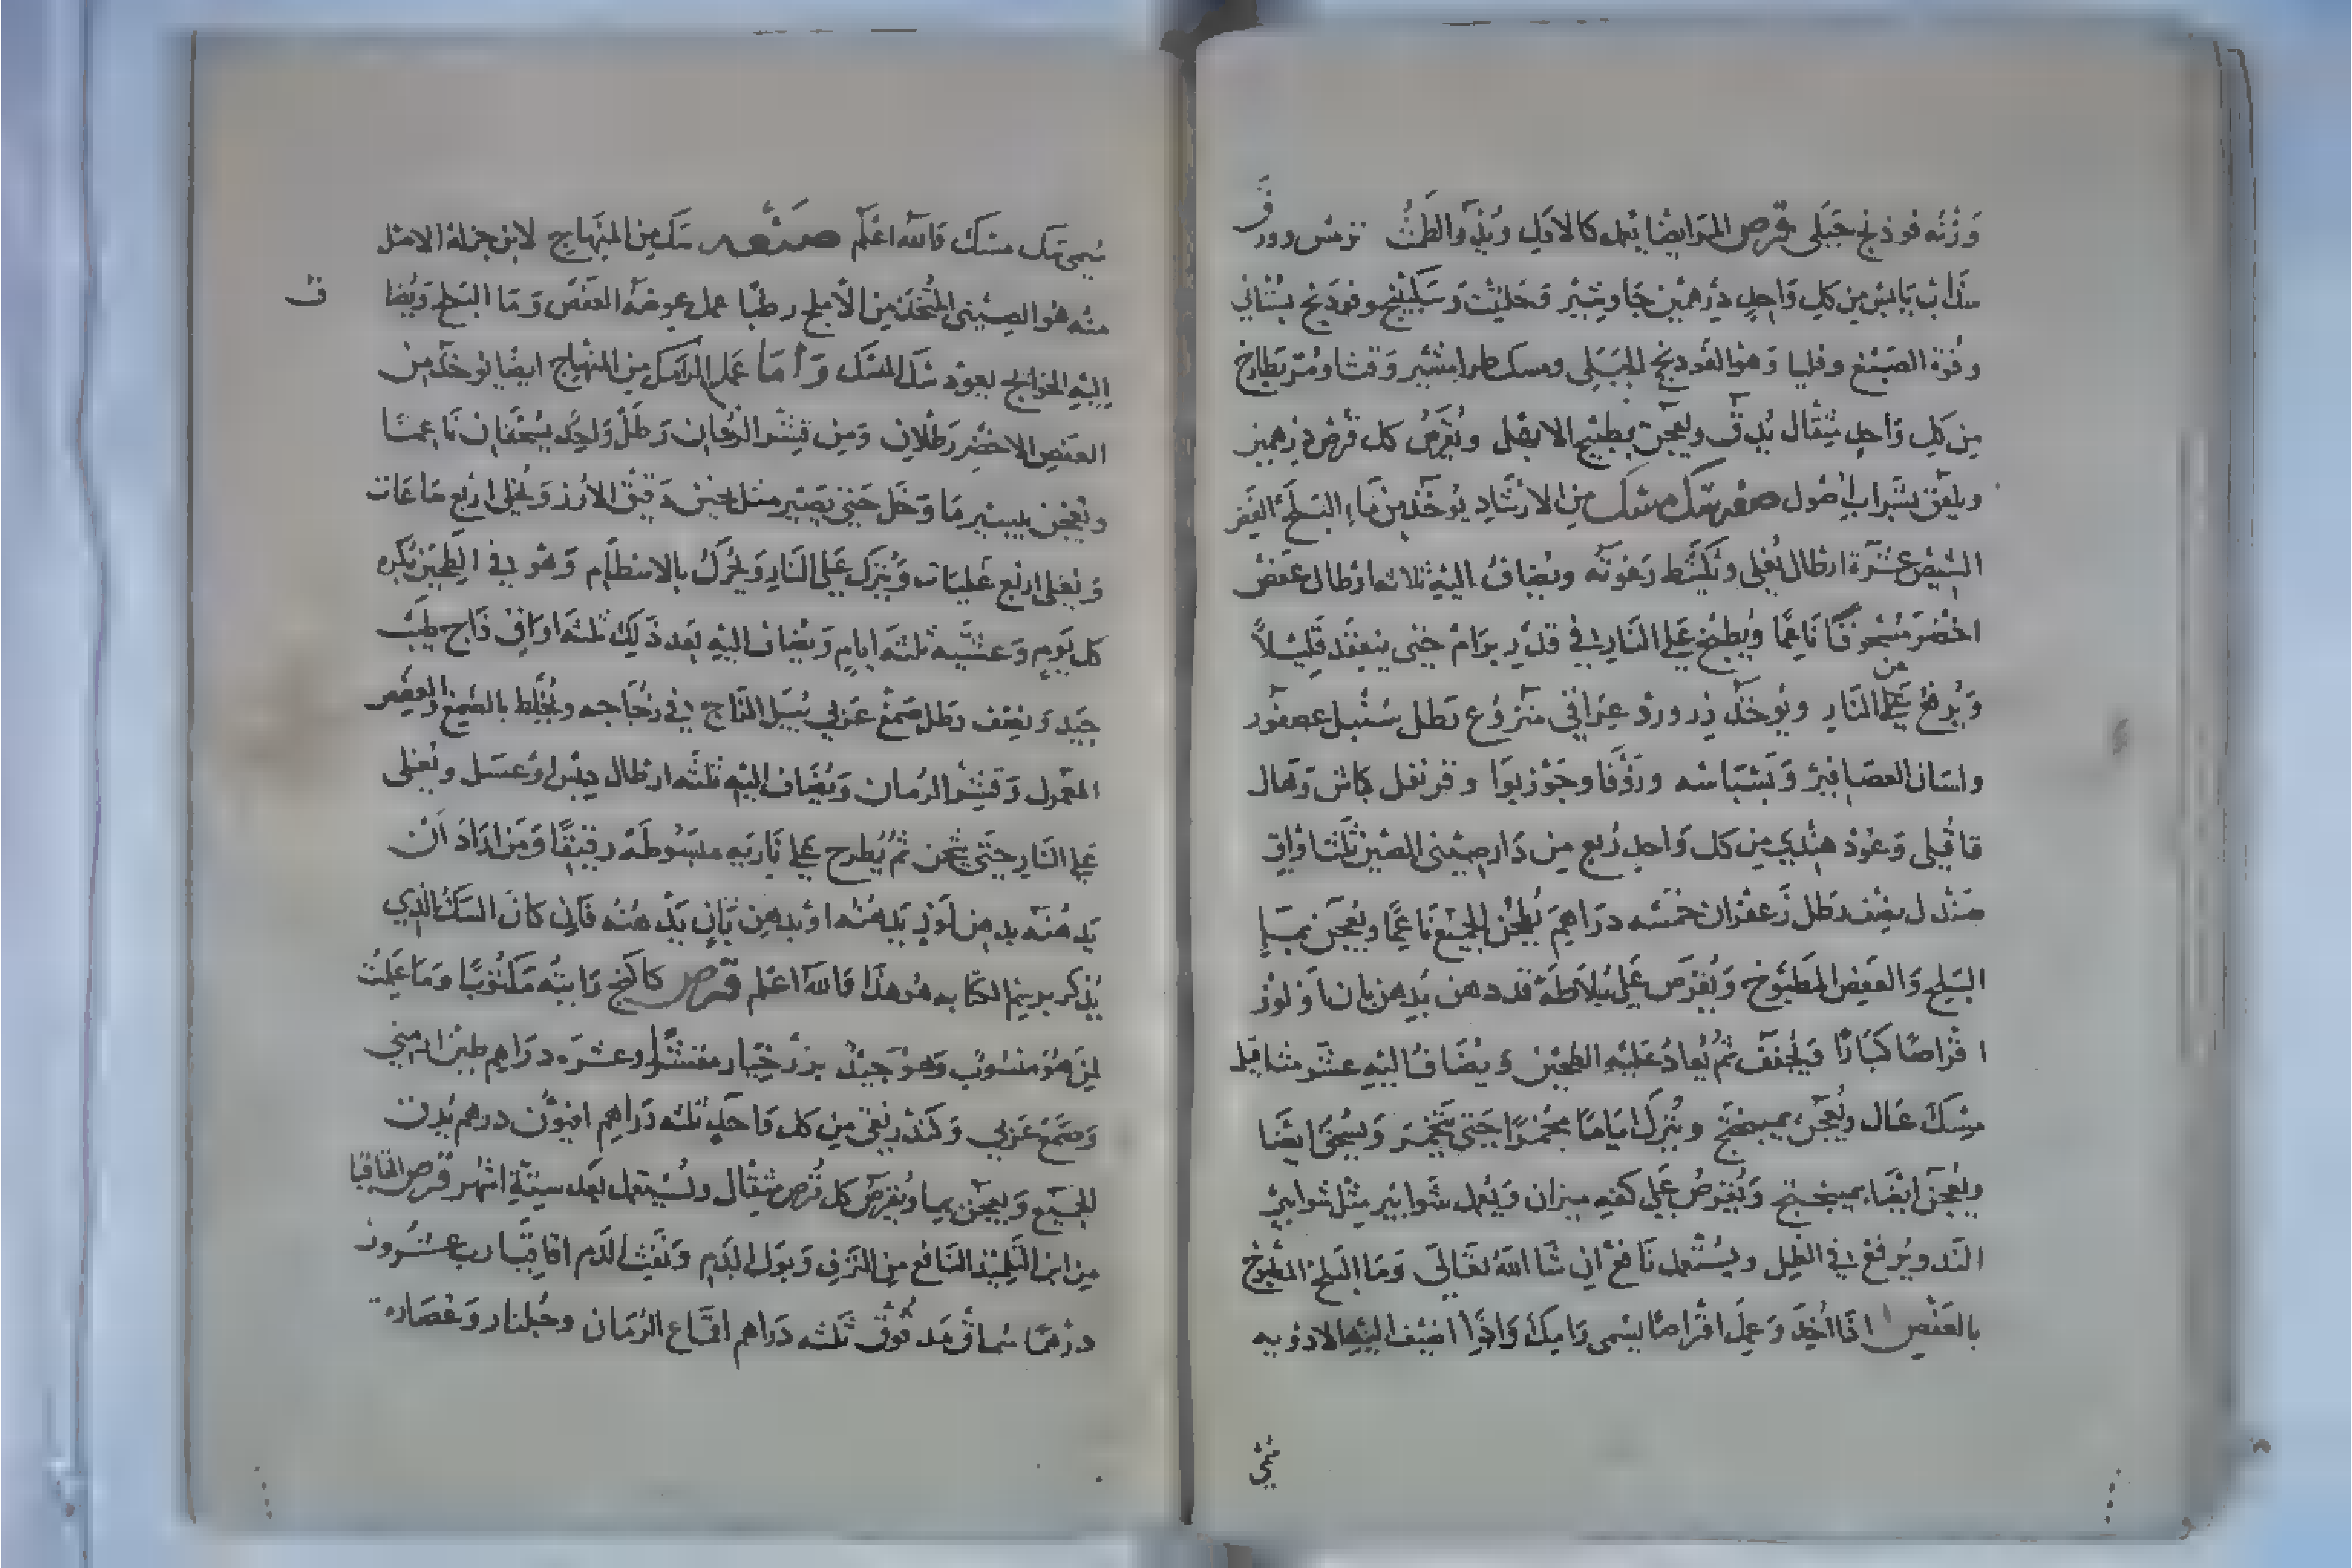 وزنه فوذنج جبلي قرص المر ايضا يعمل كالاول ويذر الطمث ترمس وورق
سذاب يابس من كل واحد درهمين جاوشير وحلتيت وسكبينج وفوذنج بستاني
وفوة الصبغ وفليا وهو الفودنج الجبلي ومسك طرامشير وقثا ومر بطارخ
من كل واحد مثقال يدق ويعجن بطبيخ الابهل ويقرص كل قرص درهمين
ويلعق بشراب الاصول صفة سك مسك من الارشاد يوخذ من ماء البلح الغير
الشيص عشرة ارطال يغلي وتكشط رغوته ويضاف اليه ثلاثه ارطال عفص
اخضر مسحوقا ناعما ويطبخ علي النار في قدر برام حتى ينعقد قليلا
ويرفع عن علي النار ويوخذ زر ورد عراقي منزوع رطل سنبل عصفور
ولسان العصافير وبسباسه وجوزبوا وقرنفل كباش وهال
قاقلي وعود هندي من كل واحد ربع من دار صيني الصين ثلث اواق
صندل نصف رطل زعفران خمسه دراهم يطحن الجميع ناعما ويعجن بمآ
البلح والعفص المطبوخ ويقرص علي بلاطة قد دهن بدهن بان او لوز
اقراصا كبارا فيجفف ثم يعاد عليه الطحين ويضاف اليه عشر مثاقيل
مسك عال ويعجن بميبختج ويترك اياما مخمرا حتى يتخمر ويسحق ايضا
ويعجن ايضا بميبختج ويقرص علي كفه ميزان ويعمل شوابير مثل شوابير
الند ويرفع في الظل ويستعمل نافع ان شا الله تعالى وما البلح المطبوخ
بالعفص اذا اخذ وعمل اقراصا يسمى رامك واذا اضيف اليه الادويه
يسمى سك مسك والله اعلم صنعه سك من المنهاج لابن جزلة الاصل
منه هو الصيني المتخذ من الاملج رطبا عمل عوضه العفص وما البلح ويضا ف
اليه الحوايج يعود سك المسك واما عمل الرامك من المنهاج ايضا يوخذ من
العفص الاخضر رطلان ومن قشر الرمان رطل واحد يسحقان ناعما
ويعجن بيسير ما وخل حتى يصير مثل دقيق الارز ويخلي اربع ساعات
ويغلي اربع غليات ويترك علي النار ويحرك بالاسطام وهو في الطحين بكره
كل يوم وعشيه ثلثه ايام ويضاف اليه بعد ذلك ثلثه اواق زاج طيب
جيد ونصف رطل صمغ عربي يسيل الزاج في زجاجه ويخلط بالصمغ والعفص
المعمول وقشر الرمان ويضاف اليه ثلثه ارطال دبس او عسل ويغلي
علي النار حتى يثخن ثم يطرح علي باريه مبسوطه رقيقا ومن اراد ان
يدهنه بدهن لوز يدهنه او بدهن بان يدهنه فان كان السك الذي
يذكر برسم الكتابه هو هذا والله اعلم قرص كاكنج رايته مكتوبا وما علمت
لمن هو منسوب وهو جيد بزر خيار مقشر عشره دراهم طين ارمني
وصمغ عربي وكندر نقي من كل واحد ثلثه دراهم افيون درهم يدق
الجميع ويعجن بما ويقرص كل قرص مثقال ويستعمل بعد ستة اشهر قرص اقاقيا
من ابن التلميذ النافع من النزف وبول الدم ونفث الدم اقاقيا رب عشرون
درهما سماق مدقوق ثلثه دراهم اقماع الرمان وجلنار وعصاره